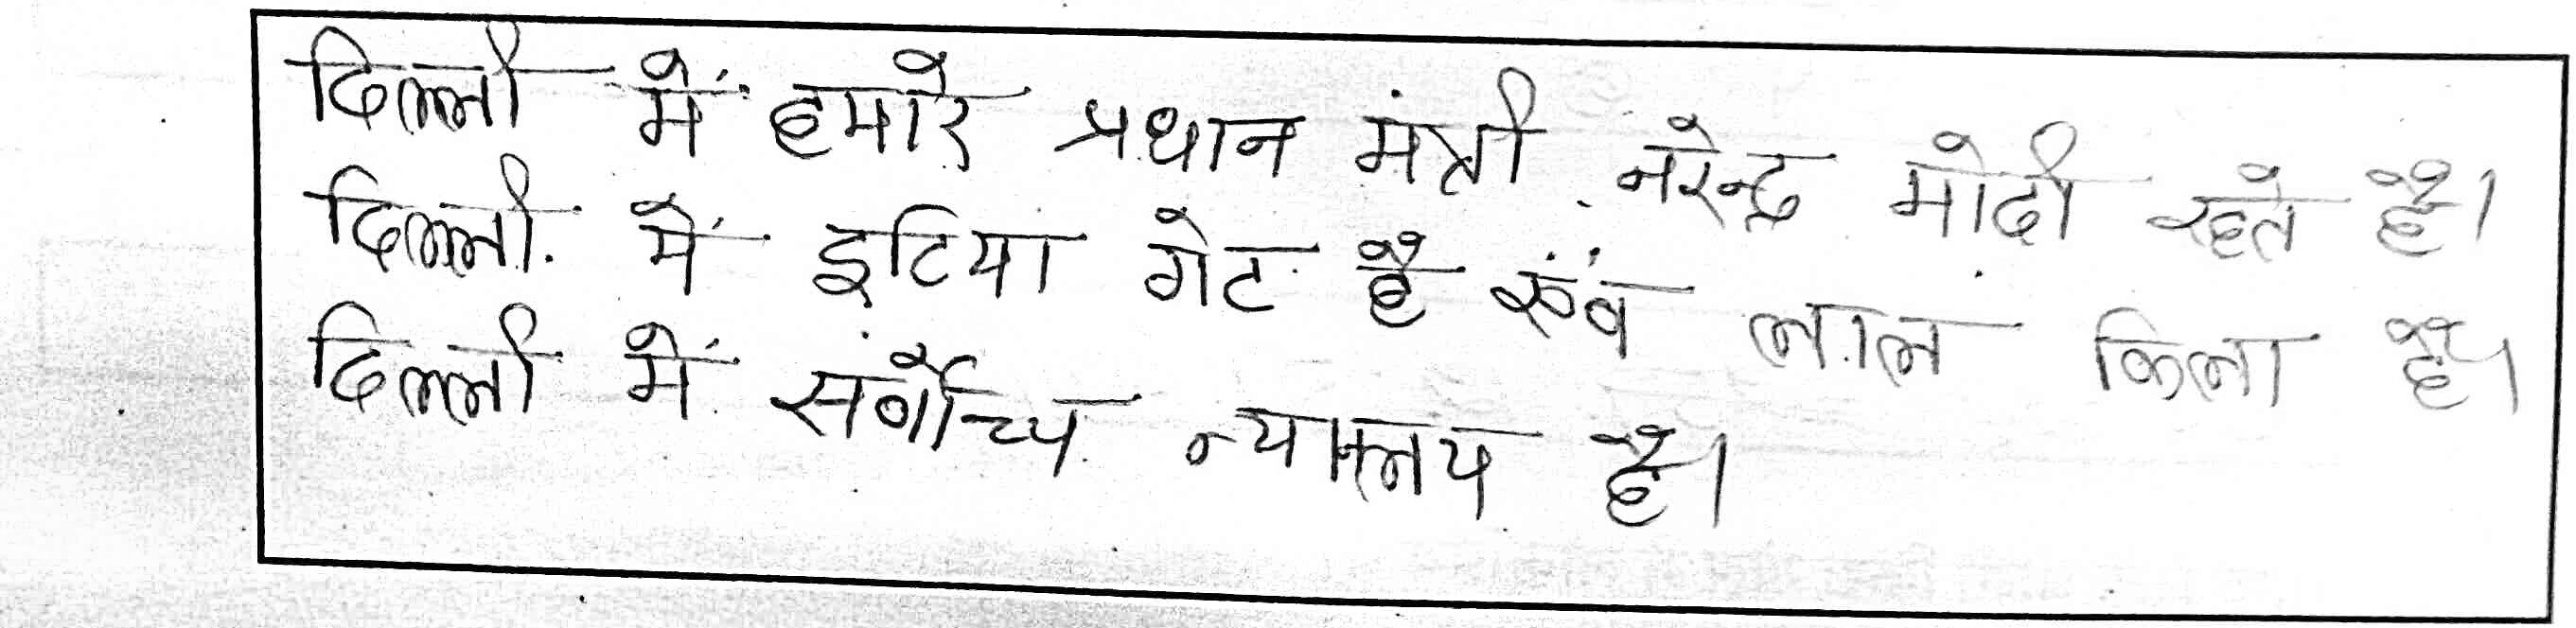 दिल्ली में हमारे प्रधान मंत्री नरेन्द्र मोदी रहते है।
दिल्ली में इटिया गेट है एंव लाल किला है।
दिल्ली में सर्वोच्य न्यालय है।